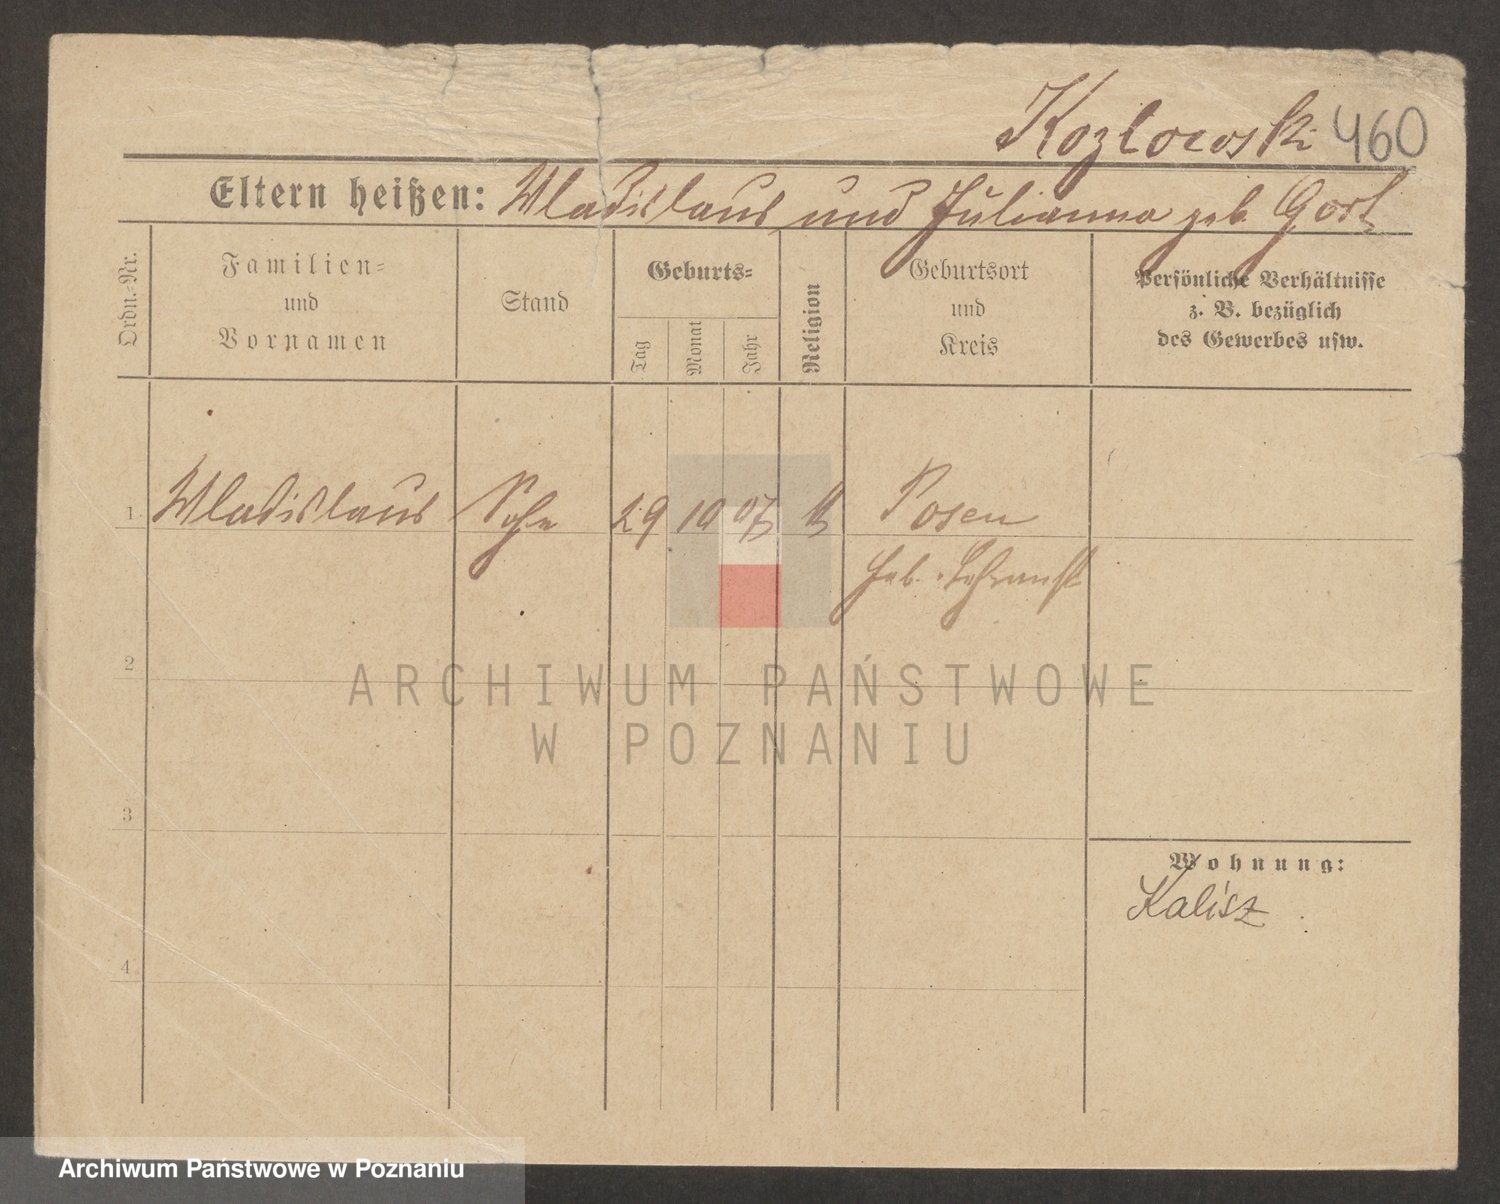 Kozlowski 460
Eltern heißen: Wladislaus und Julianna geb. Gort
Ordn.-Nr.
Familien-
und
Vornamen
Stand
Geburts-
Tag
Monat
Jahr
Religion
Geburtsort
und
Kreis
Persönliche Verhältnisse
z. B. bezüglich
des Gewerbes usw.
1 Wladislaus 29 10 07 Posen
Heb.
2
ARCHIWUM PAŃSTWOWE
W POZNANIU
3
Wohnung:
Kalisz
4
Archiwum Państwowe w Poznaniu